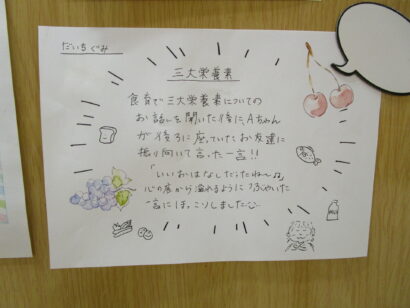 だいちぐみ
三大栄養素
食育で三大栄養素についての
お話しを聞いた後に、Aちゃん
が後ろに座っていたお友達に
振り向いて言った一言!!
「いいおはなしだったね〜♫」
心の底から溢れるようにつぶやいた
一言にほっこりしました
MILK